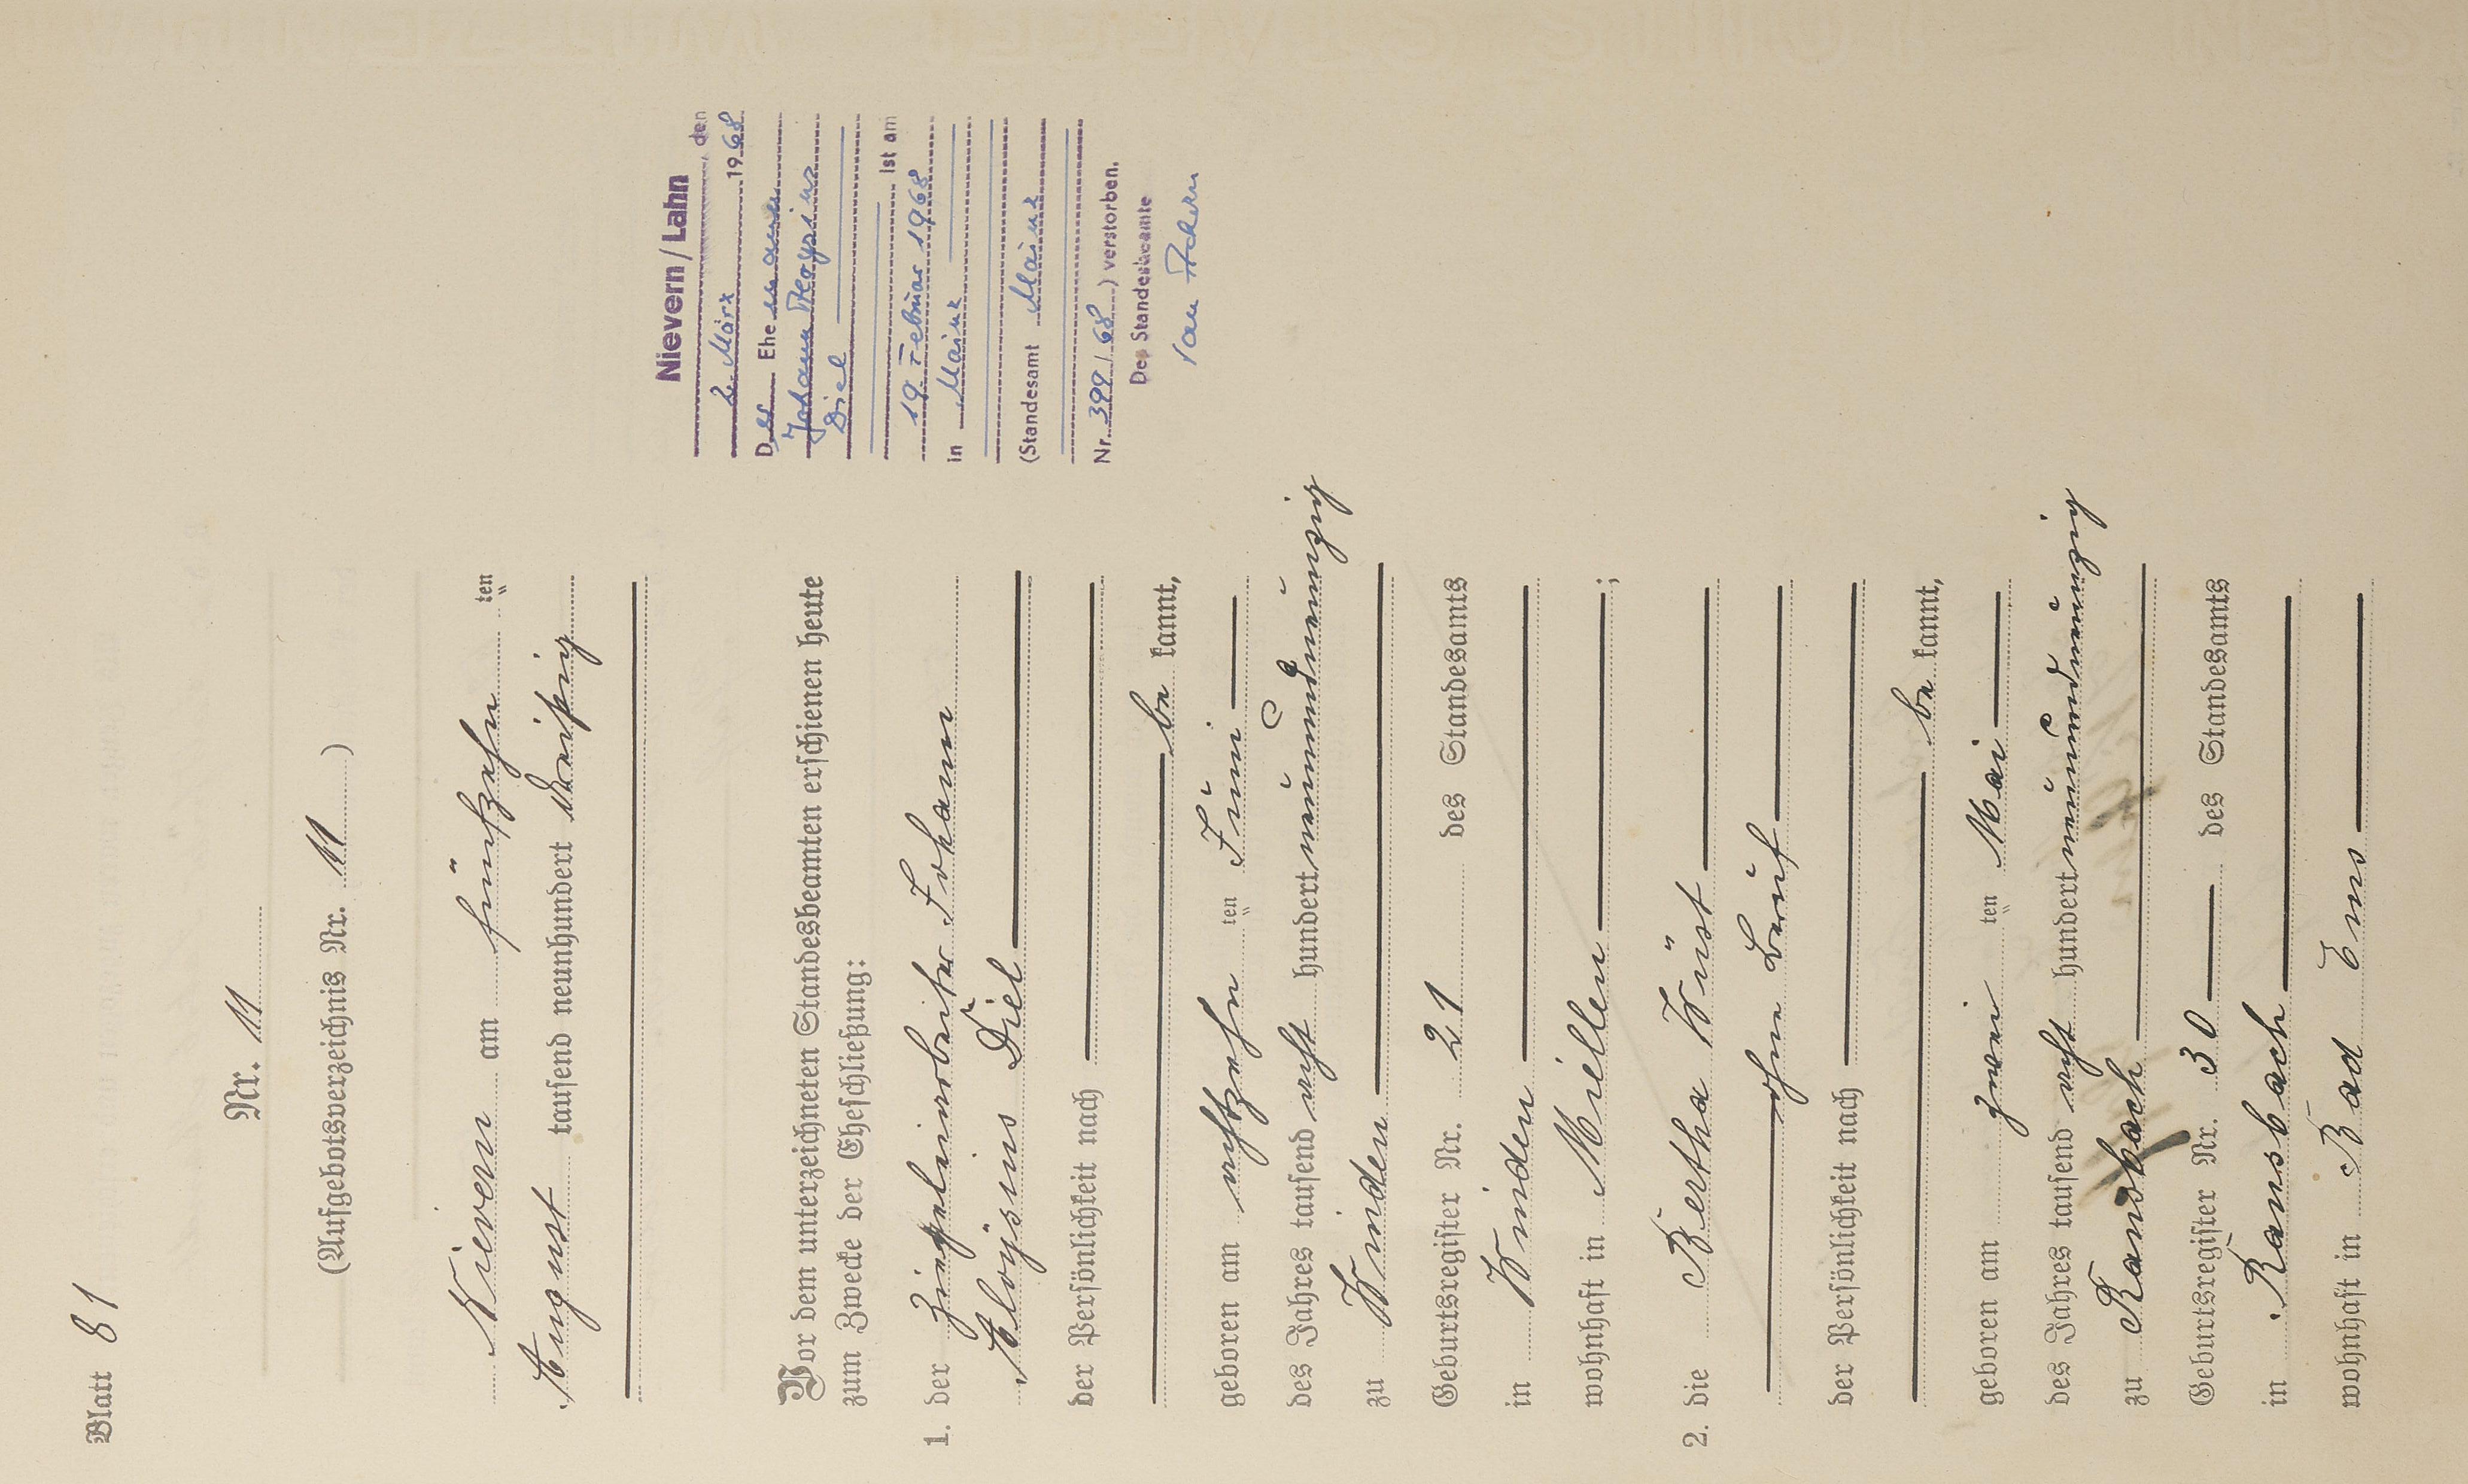 Blatt 81
Nr. 11
(Aufgebotsverzeichnis Nr. 11)
Nievern am fünfzehn ten
August tausend neunhundert dreißig
Vor dem unterzeichneten Standesbeamten erschienen heute
zum Zwecke der Eheschließung:
1. der Ziegeleiarbeiter Johann
Aloysius Diel
der Persönlichkeit nach
be kannt,
geboren am achtzehn ten Juni
des Jahres tausend acht hundert neunundneunzig
zu Winden
Geburtsregister Nr. 21 des Standesamts
in Winden
wohnhaft in Miellen ;
2. die Bertha Wüst
ohne Beruf
der Persönlichkeit nach
be kannt,
geboren am zwei ten Mai
des Jahres tausend acht hundert neunundneunzig
zu Ransbach
Geburtsregister Nr. 30 des Standesamts
in Ransbach
wohnhaft in Bad Ems
Nievern/Lahn
, den
2. März 1968
Der Ehemann
Johann Aloysius
Diel
ist am
19. Februar 1968
in Mainz
(Standesamt Mainz
Nr. 399/68) verstorben.
Der Standesbeamte